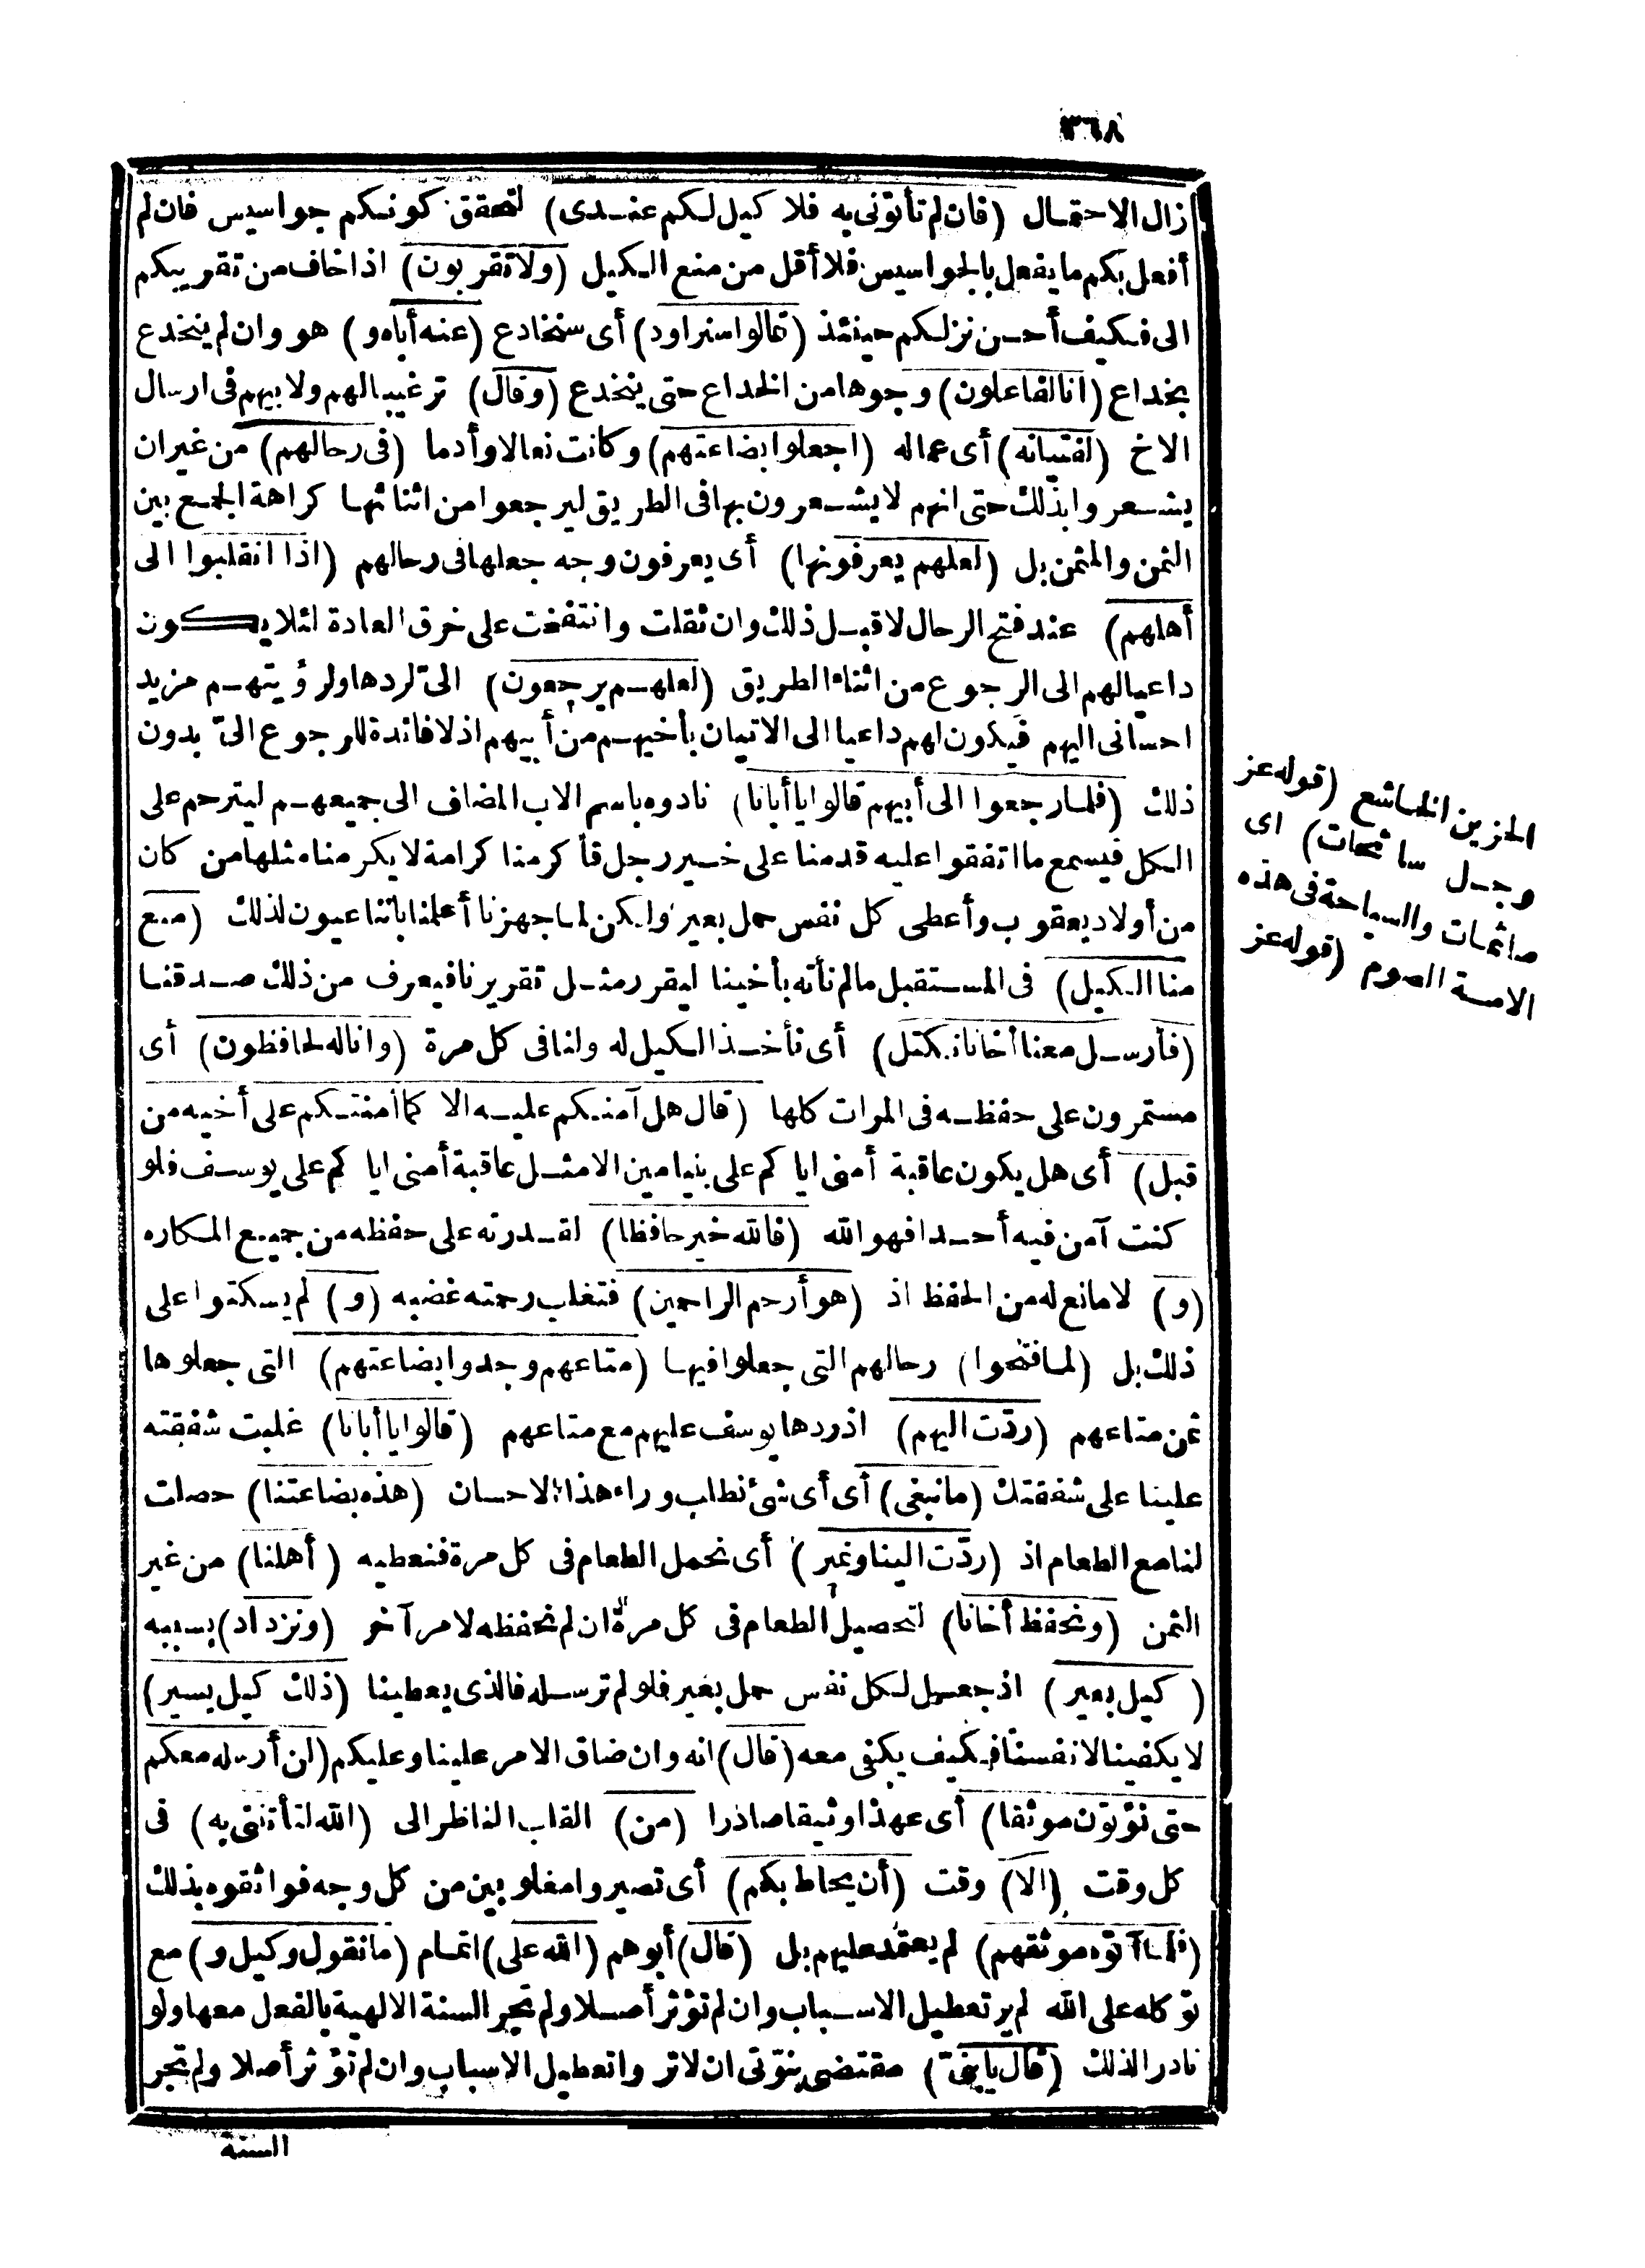 ٣٦٨
زال الاحتمال (فان لم تأتونى به فلا كيل لكم عندى) لتحقق كونكم جواسيس فان لم
أفعل بكم ما يفعل بالجواسيس فلا أقل من منع الكيل (ولا تقربون) اذا خاف من تقريبكم
الى فكيف أحسن نزلكم حينئذ (قالوا سنراود) أى سنخادع (عنه أباه و) هو وان لم ينخدع
بخداع (انا لفاعلون) وجوها من الخداع حتى ينخدع (وقال) ترغيبا لهم ولابيهم فى ارسال
الاخ (لفتيانه) أى عماله (اجعلوا بضاعتهم) وكانت نعالا وأدما (فى رحالهم) من غير ان
يشعروا بذلك حتى انهم لا يشعرون بها فى الطريق ليرجعوا من اثنائها كراهة الجمع بين
الثمن والمثمن بل (لعلهم يعرفونها) أى يعرفون وجه جعلها فى رحالهم (اذا انقلبوا الى
أهلهم) عند فتح الرحال لا قبل ذلك وان ثقلت وانتفخت على خرق العادة لئلا يكون
داعيا لهم الى الرجوع من اثناء الطريق (لعلهم يرجعون) الىّ لردها ولرؤيتهم مزيد
احسانى اليهم فيكون لهم داعيا الى الاتيان بأخيهم من أبيهم اذ لا فائدة للرجوع الىّ بدون
ذلك (فلما رجعوا الى أبيهم قالوا يا أبانا) نادوه باسم الاب المضاف الى جميعهم ليترحم على
الكل فيسمع ما اتفقوا عليه قدمنا على خير رجل فأكرمنا كرامة لا يكرمنا مثلها من كان
من أولاد يعقوب وأعطى كل نفس حمل بعير ولكن لما جهزنا أعلمنا باننا عيون لذلك (منع
منا الكيل) فى المستقبل ما لم نأته بأخينا ليقرر مثل تقريرنا فيعرف من ذلك صدقنا
(فأرسل معنا أخانا نكتل) أى نأخذ الكيل له ولنا فى كل مرة (وانا له لحافظون) أى
مستمرون على حفظه فى المرات كلها (قال هل آمنكم عليه الا كما أمنتكم على أخيه من
قبل) أى هل يكون عاقبة أمنى اياكم على بنيامين الا مثل عاقبة أمنى اياكم على يوسف فلو
كنت آمن فيه أحدا فهو الله (فالله خير حافظا) لقدرته على حفظه من جميع المكاره
(و) لا مانع له من الحفظ اذ (هو أرحم الراحمين) فتغلب رحمته غضبه (و) لم يسكتوا على
ذلك بل (لما فتحوا) رحالهم التى جعلوا فيها (متاعهم وجدوا بضاعتهم) التى جعلوها
ثمن متاعهم (ردّت اليهم) اذ ردها يوسف عليهم مع متاعهم (قالوا يا أبانا) غلبت شفقته
علينا على شفقتك (ما نبغى) أى أى شئ نطلب وراء هذا الاحسان (هذه بضاعتنا) حصلت
لنا مع الطعام اذ (ردّت الينا ونمير) أى نحمل الطعام فى كل مرة فنعطيه (أهلنا) من غير
الثمن (ونحفظ أخانا) لتحصيل الطعام فى كل مرة ان لم نحفظه لامر آخر (ونزداد) بسببه
(كيل بعير) اذ جعل لكل نفس حمل بعير فلو لم ترسله فالذى يعطينا (ذلك كيل يسير)
لا يكفينا لانفسنا فكيف يكفى معه (قال) انه وان ضاق الامر علينا وعليكم (لن أرسله معكم
حتى تؤتون موثقا) أى عهدا وثيقا صادرا (من) القلب الناظر الى (الله لتأتننى به) فى
كل وقت (الا) وقت (أن يحاط بكم) أى تصيروا مغلوبين من كل وجه فواثقوه بذلك
(فلما آتوه موثقهم) لم يعتمد عليهم بل (قال) أبوهم (الله على) اتمام (ما نقول وكيل و) مع
توكله على الله لم ير تعطيل الاسباب وان لم تؤثر أصلا ولم تجر السنة الالهية بالفعل معها ولو
نادرا لذلك (قال يا بنىّ) مقتضى بنوّتى ان لا تروا تعطيل الاسباب وان لم تؤثر أصلا ولم تجر
السنة
الحزين الخاشع (قوله عز
وجل سائحات) اى
صائمات والسياحة فى هذه
الامة الصوم (قوله عز